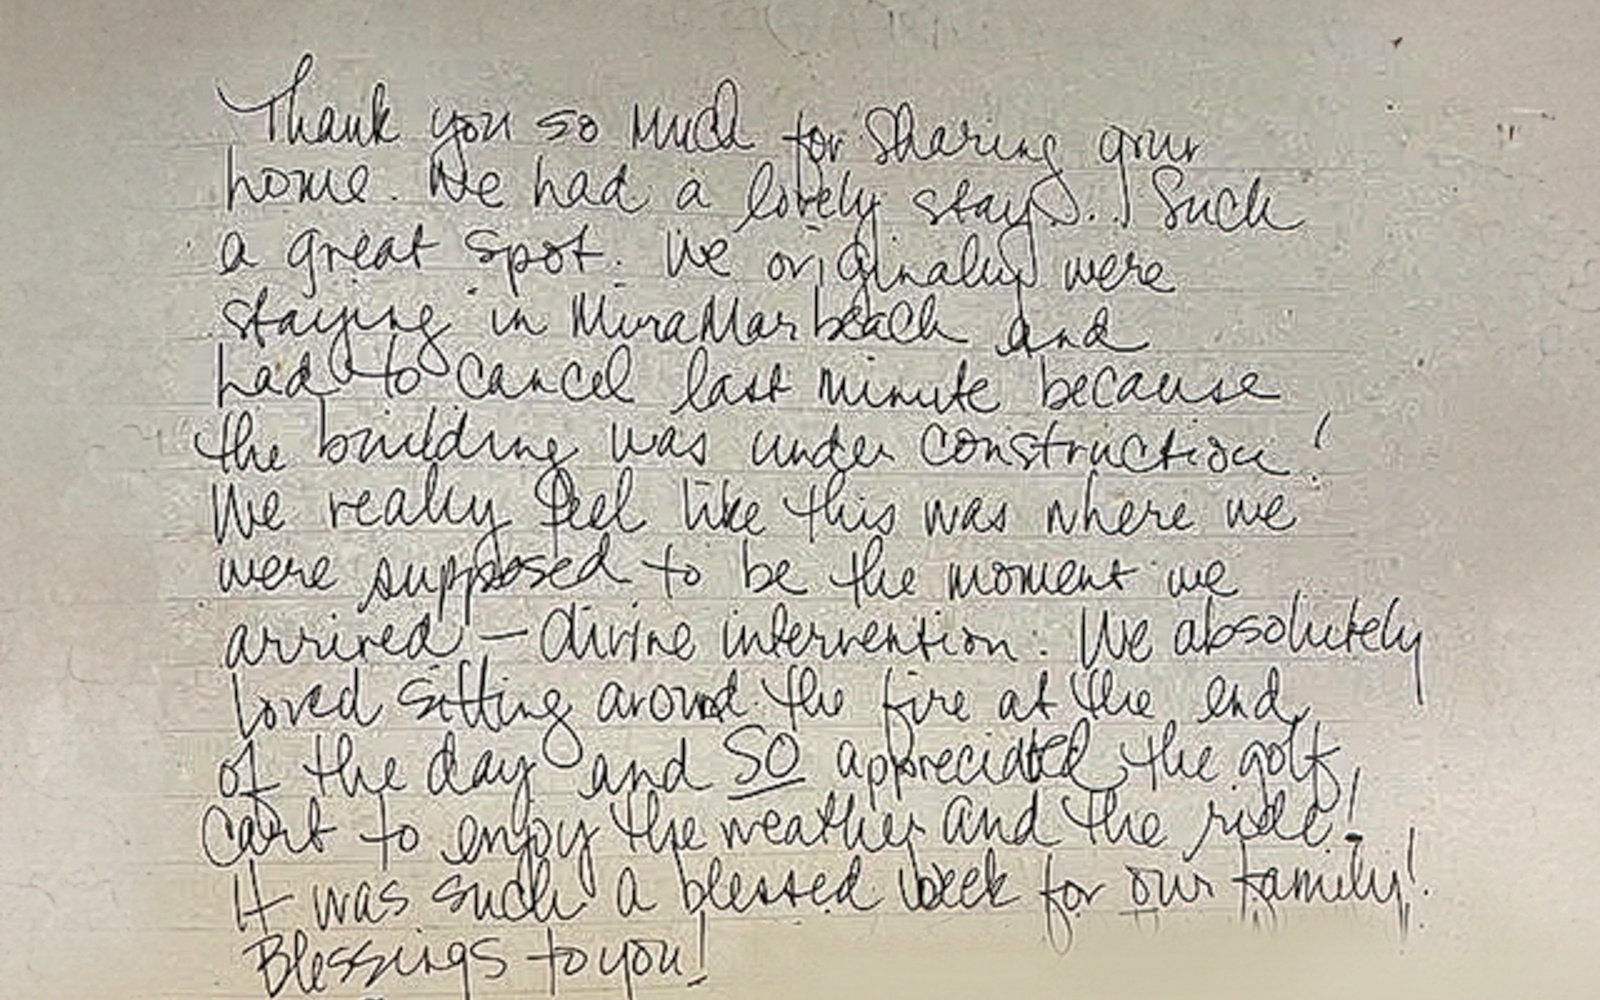 Thank you so much for sharing your
home. We had a lovely stay... Such
a great spot. We originally were
staying in MiraMar beach and
had to cancel last minute because
the building was under construction!
We really feel like this was where we
were supposed to be the moment we
arrived — divine intervention. We absolutely
loved sitting around the fire at the end
of the day and SO appreciated the golf
cart to enjoy the weather and the ride!
It was such a blessed week for our family!
Blessings to you!